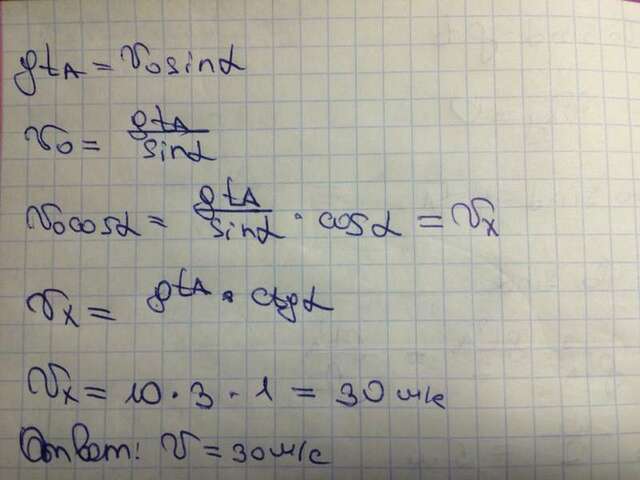 gt_A = v₀sinα
v₀ = gt_A / sinα
v₀cosα = gt_A / sinα · cosα = v_x
v_x = gt_A · ctgα
v_x = 10 · 3 · 1 = 30 м/с
Ответ: v = 30 м/с